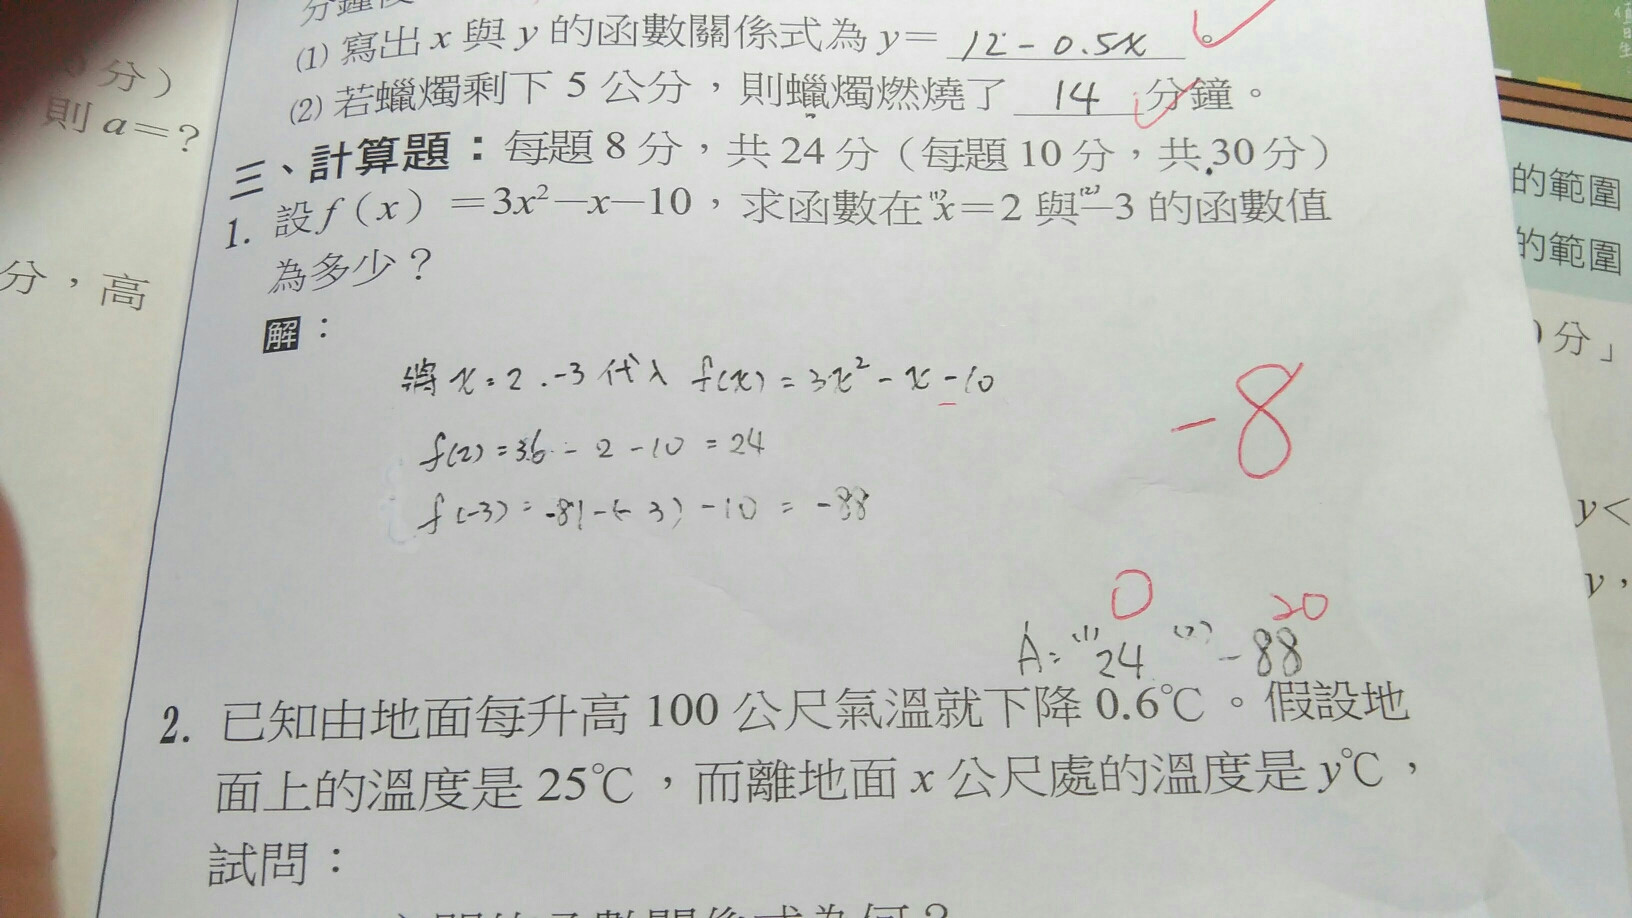 (1) 寫出 x 與 y 的函數關係式為 y= 12-0.5x 。
(2) 若蠟燭剩下 5 公分，則蠟燭燃燒了 14 分鐘。
三、計算題：每題 8 分，共 24 分（每題 10 分，共 30 分）
1. 設 f（x）=3x²-x-10，求函數在 (1) x=2 與 (2) -3 的函數值
為多少？
解：
將 x=2.-3 代入 f(x)=3x²-x-10
f(2)=36-2-10=24
f(-3)=-81-(-3)-10=-88
-8
0 20
A=(1)24 (2)-88
2. 已知由地面每升高 100 公尺氣溫就下降 0.6℃。假設地
面上的溫度是 25℃，而離地面 x 公尺處的溫度是 y℃，
試問：
分）
則 a=?
分，高
的範圍
的範圍
分」
y<
y，